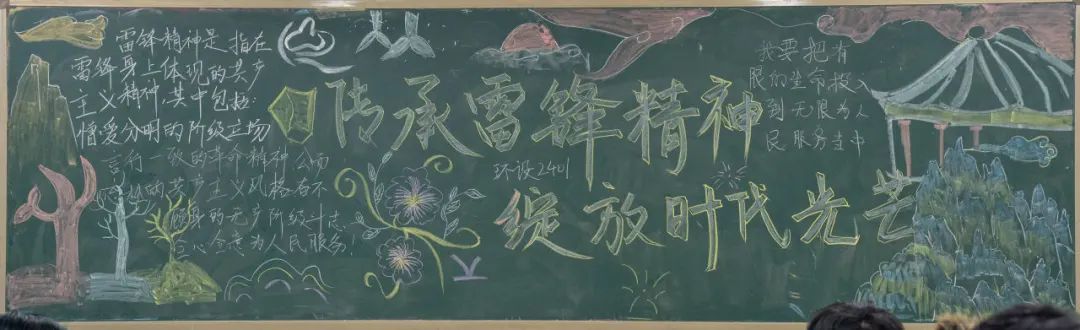 雷锋精神是指在
雷锋身上体现的共产
主义精神,其中包括:
憎爱分明的阶级立场
言行一致的革命精神公而
忘私的共产主义风格奋不
顾身的无产阶级斗志
全心全意为人民服务!
传承雷锋精神
环设2401
绽放时代光芒
我要把有
限的生命投入
到无限为人
民服务当中